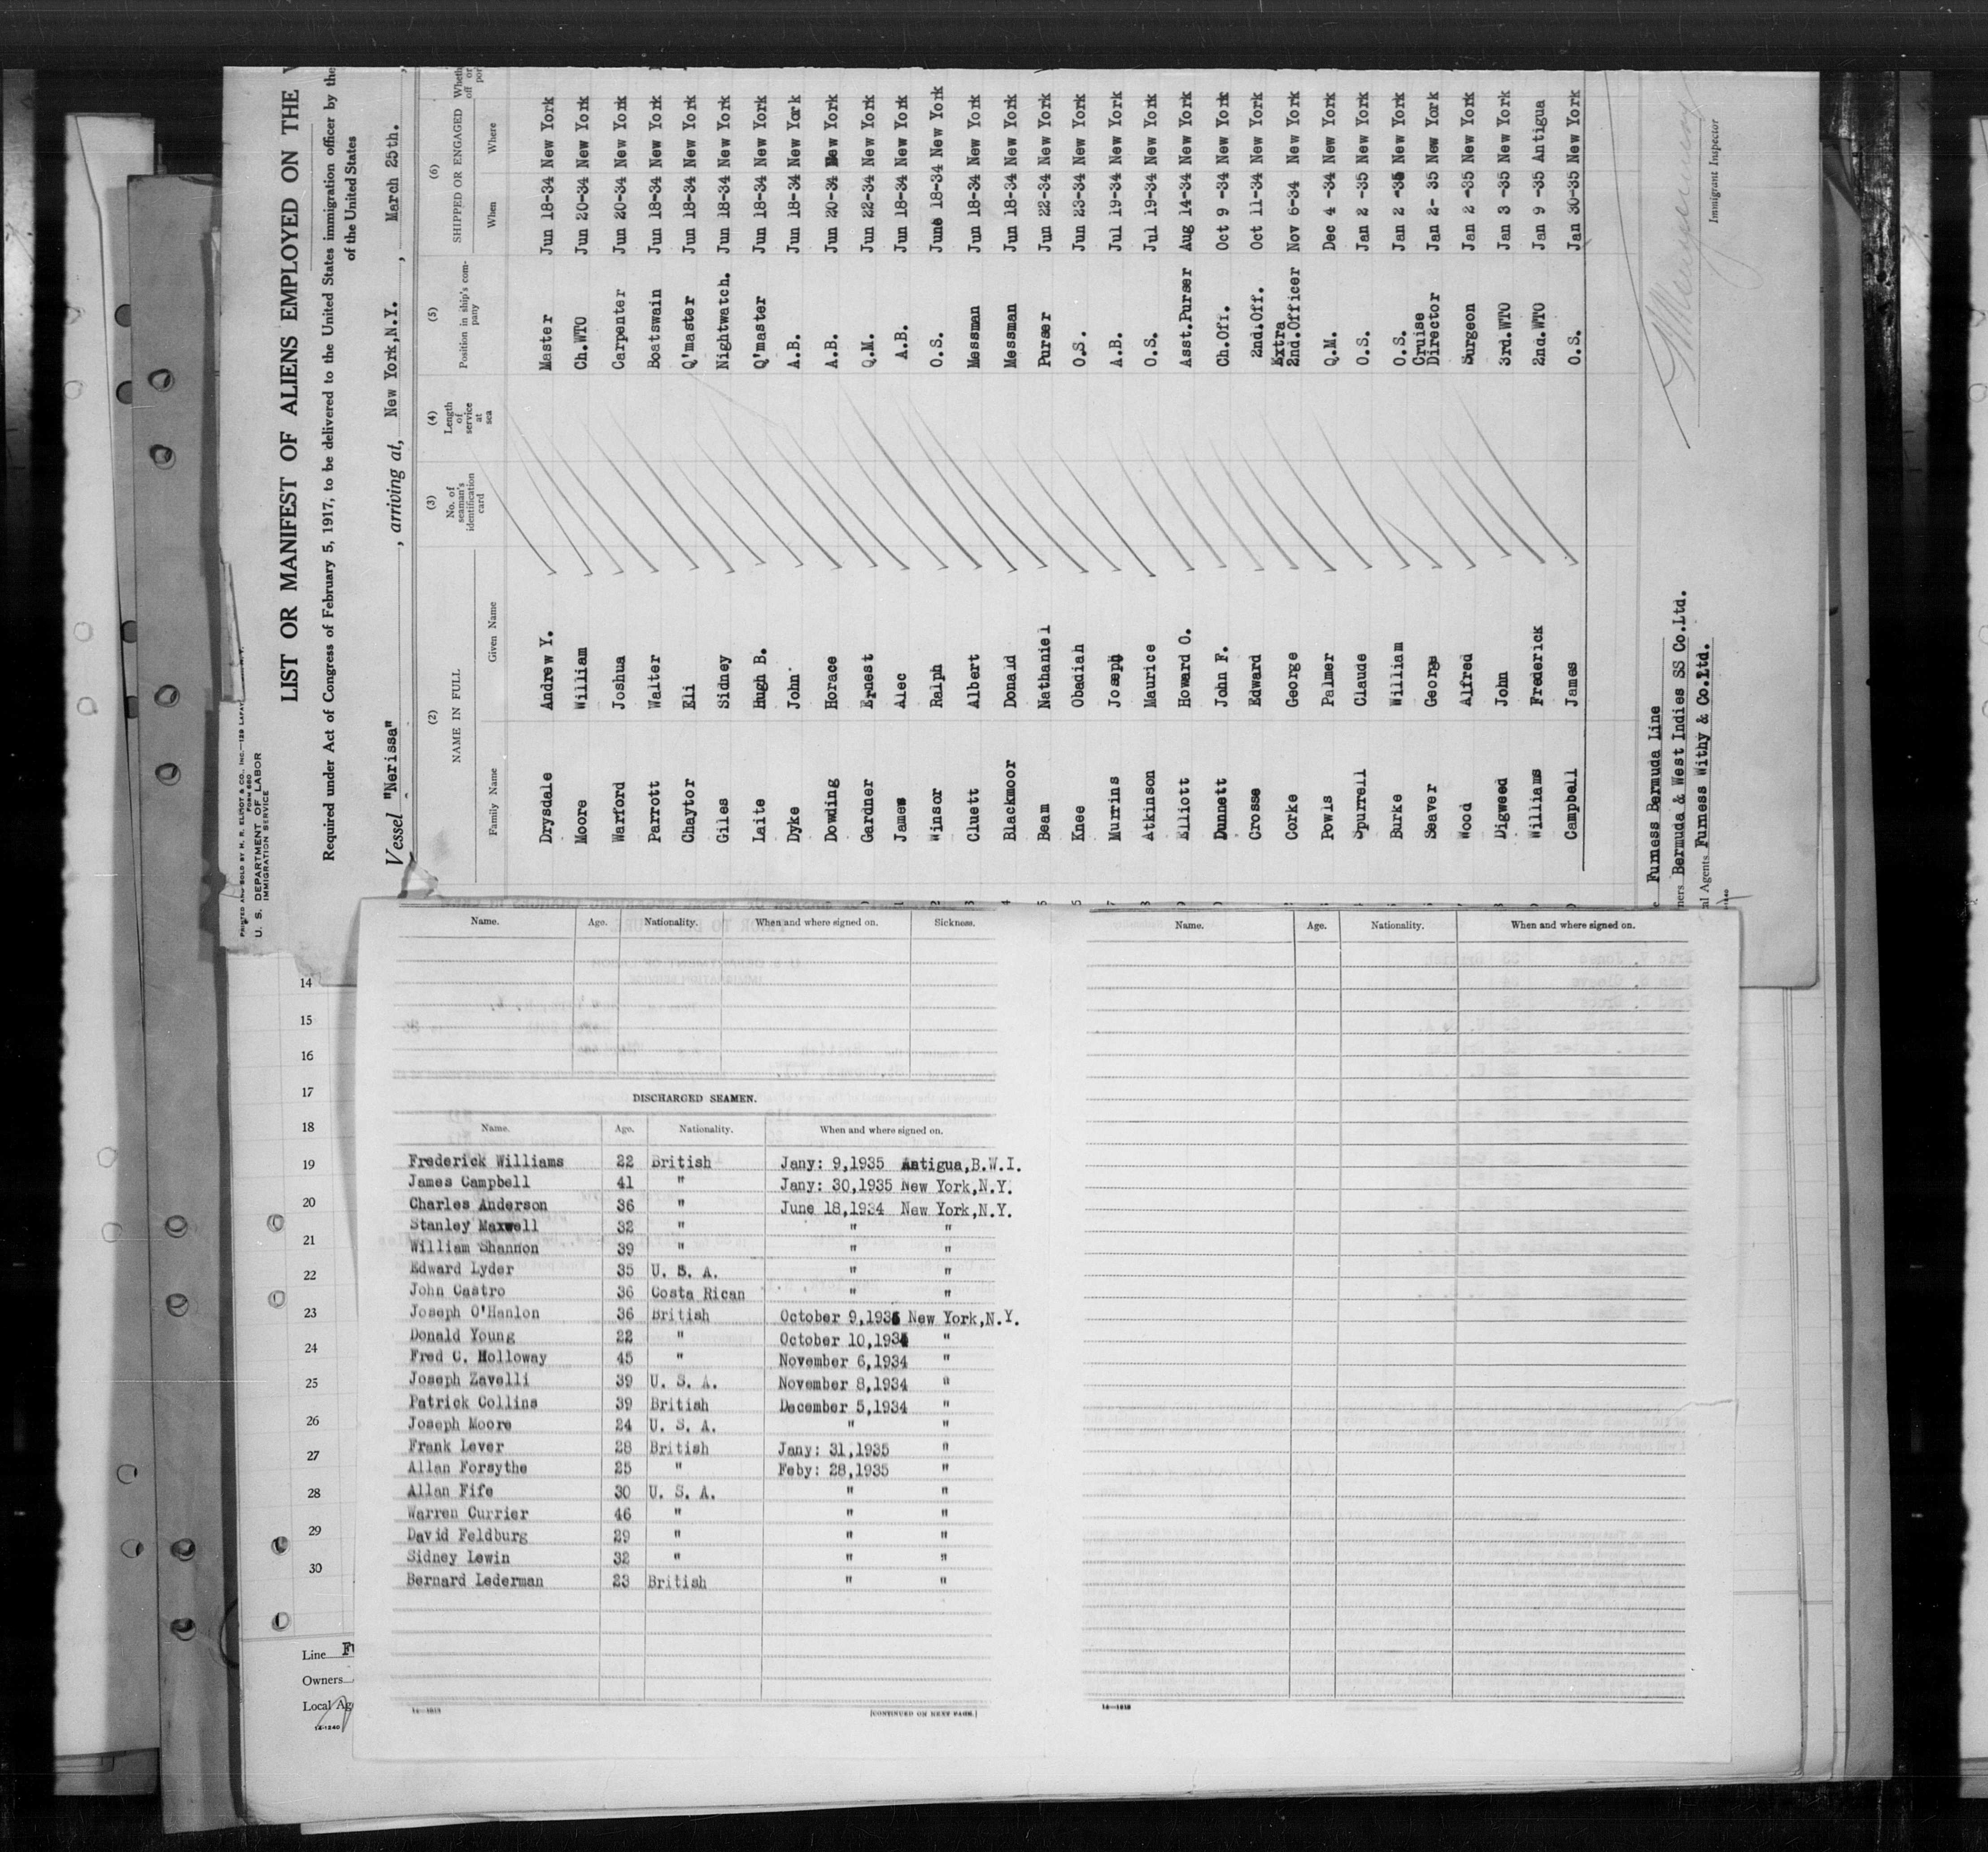 PRINTED AND SOLD BY H. R. ELLIOT & CO., INC.—129 LAFAY
FORM 680
U. S. DEPARTMENT OF LABOR
IMMIGRATION SERVICE
LIST OR MANIFEST OF ALIENS EMPLOYED ON THE
Required under Act of Congress of February 5, 1917, to be delivered to the United States immigration officer by the
of the United States
Vessel "Nerissa" , arriving at, New York,N.Y. , March 25th. ,
(2) (3) (4) (5) (6)
NAME IN FULL No. of seaman's identification card Length of service at sea Position in ship's company SHIPPED OR ENGAGED
Family Name Given Name When Where
Drysdale Andrew Y. Master Jun 18-34 New York
Moore William Ch.WTO Jun 20-34 New York
Warford Joshua Carpenter Jun 20-34 New York
Parrott Walter Boatswain Jun 18-34 New York
Chaytor Eli Q'master Jun 18-34 New York
Giles Sidney Nightwatch. Jun 18-34 New York
Laite Hugh B. Q'master Jun 18-34 New York
Dyke John A.B. Jun 18-34 New York
Dowding Horace A.B. Jun 20-34 New York
Gardner Ernest Q.M. Jun 22-34 New York
James Alec A.B. Jun 18-34 New York
Winsor Ralph O.S. June 18-34 New York
Cluett Albert Messman Jun 18-34 New York
Blackmoor Donald Messman Jun 18-34 New York
Beam Nathaniel Purser Jun 22-34 New York
Knee Obadiah O.S. Jun 23-34 New York
Murrins Joseph A.B. Jul 19-34 New York
Atkinson Maurice O.S. Jul 19-34 New York
Elliott Howard O. Asst.Purser Aug 14-34 New York
Dunnett John F. Ch.Off. Oct 9 -34 New York
Crosse Edward 2nd.Off. Oct 11-34 New York
Corke George Extra 2nd.Officer Nov 6-34 New York
Powls Palmer Q.M. Dec 4 -34 New York
Spurrell Claude O.S. Jan 2 -35 New York
Burke William O.S. Jan 2 -35 New York
Seaver George Cruise Director Jan 2- 35 New York
Wood Alfred Surgeon Jan 2 -35 New York
Digweed John 3rd.WTO Jan 3 -35 New York
Williams Frederick 2nd.WTO Jan 9 -35 Antigua
Campbell James O.S. Jan 30-35 New York
Furness Bermuda Line
Bermuda & West Indies SS Co.Ltd.
Agents Furness Withy & Co.Ltd.
Immigrant Inspector
14
15
16
17
18
19
20
21
22
23
24
25
26
27
28
29
30
Line
Owners
Local Ag
14-1240
Name. Age. Nationality. When and where signed on. Sickness.
DISCHARGED SEAMEN.
Name. Age. Nationality. When and where signed on.
Frederick Williams 22 British Jany: 9,1935 Antigua,B.W.I.
James Campbell 41 " Jany: 30,1935 New York,N.Y.
Charles Anderson 36 " June 18,1934 New York,N.Y.
Stanley Maxwell 32 " " "
William Shannon 39 " " "
Edward Lyder 35 U. S. A. " "
John Castro 36 Costa Rican " "
Joseph O'Hanlon 36 British October 9,1934 New York,N.Y.
Donald Young 22 " October 10,1934 "
Fred C. Holloway 45 " November 6,1934 "
Joseph Zavelli 39 U. S. A. November 8,1934 "
Patrick Collins 39 British December 5,1934 "
Joseph Moore 24 U. S. A. " "
Frank Lever 28 British Jany: 31,1935 "
Allan Forsythe 25 " Feby: 28,1935 "
Allan Fife 30 U. S. A. " "
Warren Currier 46 " " "
David Feldburg 29 " " "
Sidney Lewin 32 " " "
Bernard Lederman 23 British " "
14—1213
[CONTINUED ON NEXT PAGE.]
Name. Age. Nationality. When and where signed on.
14—1213